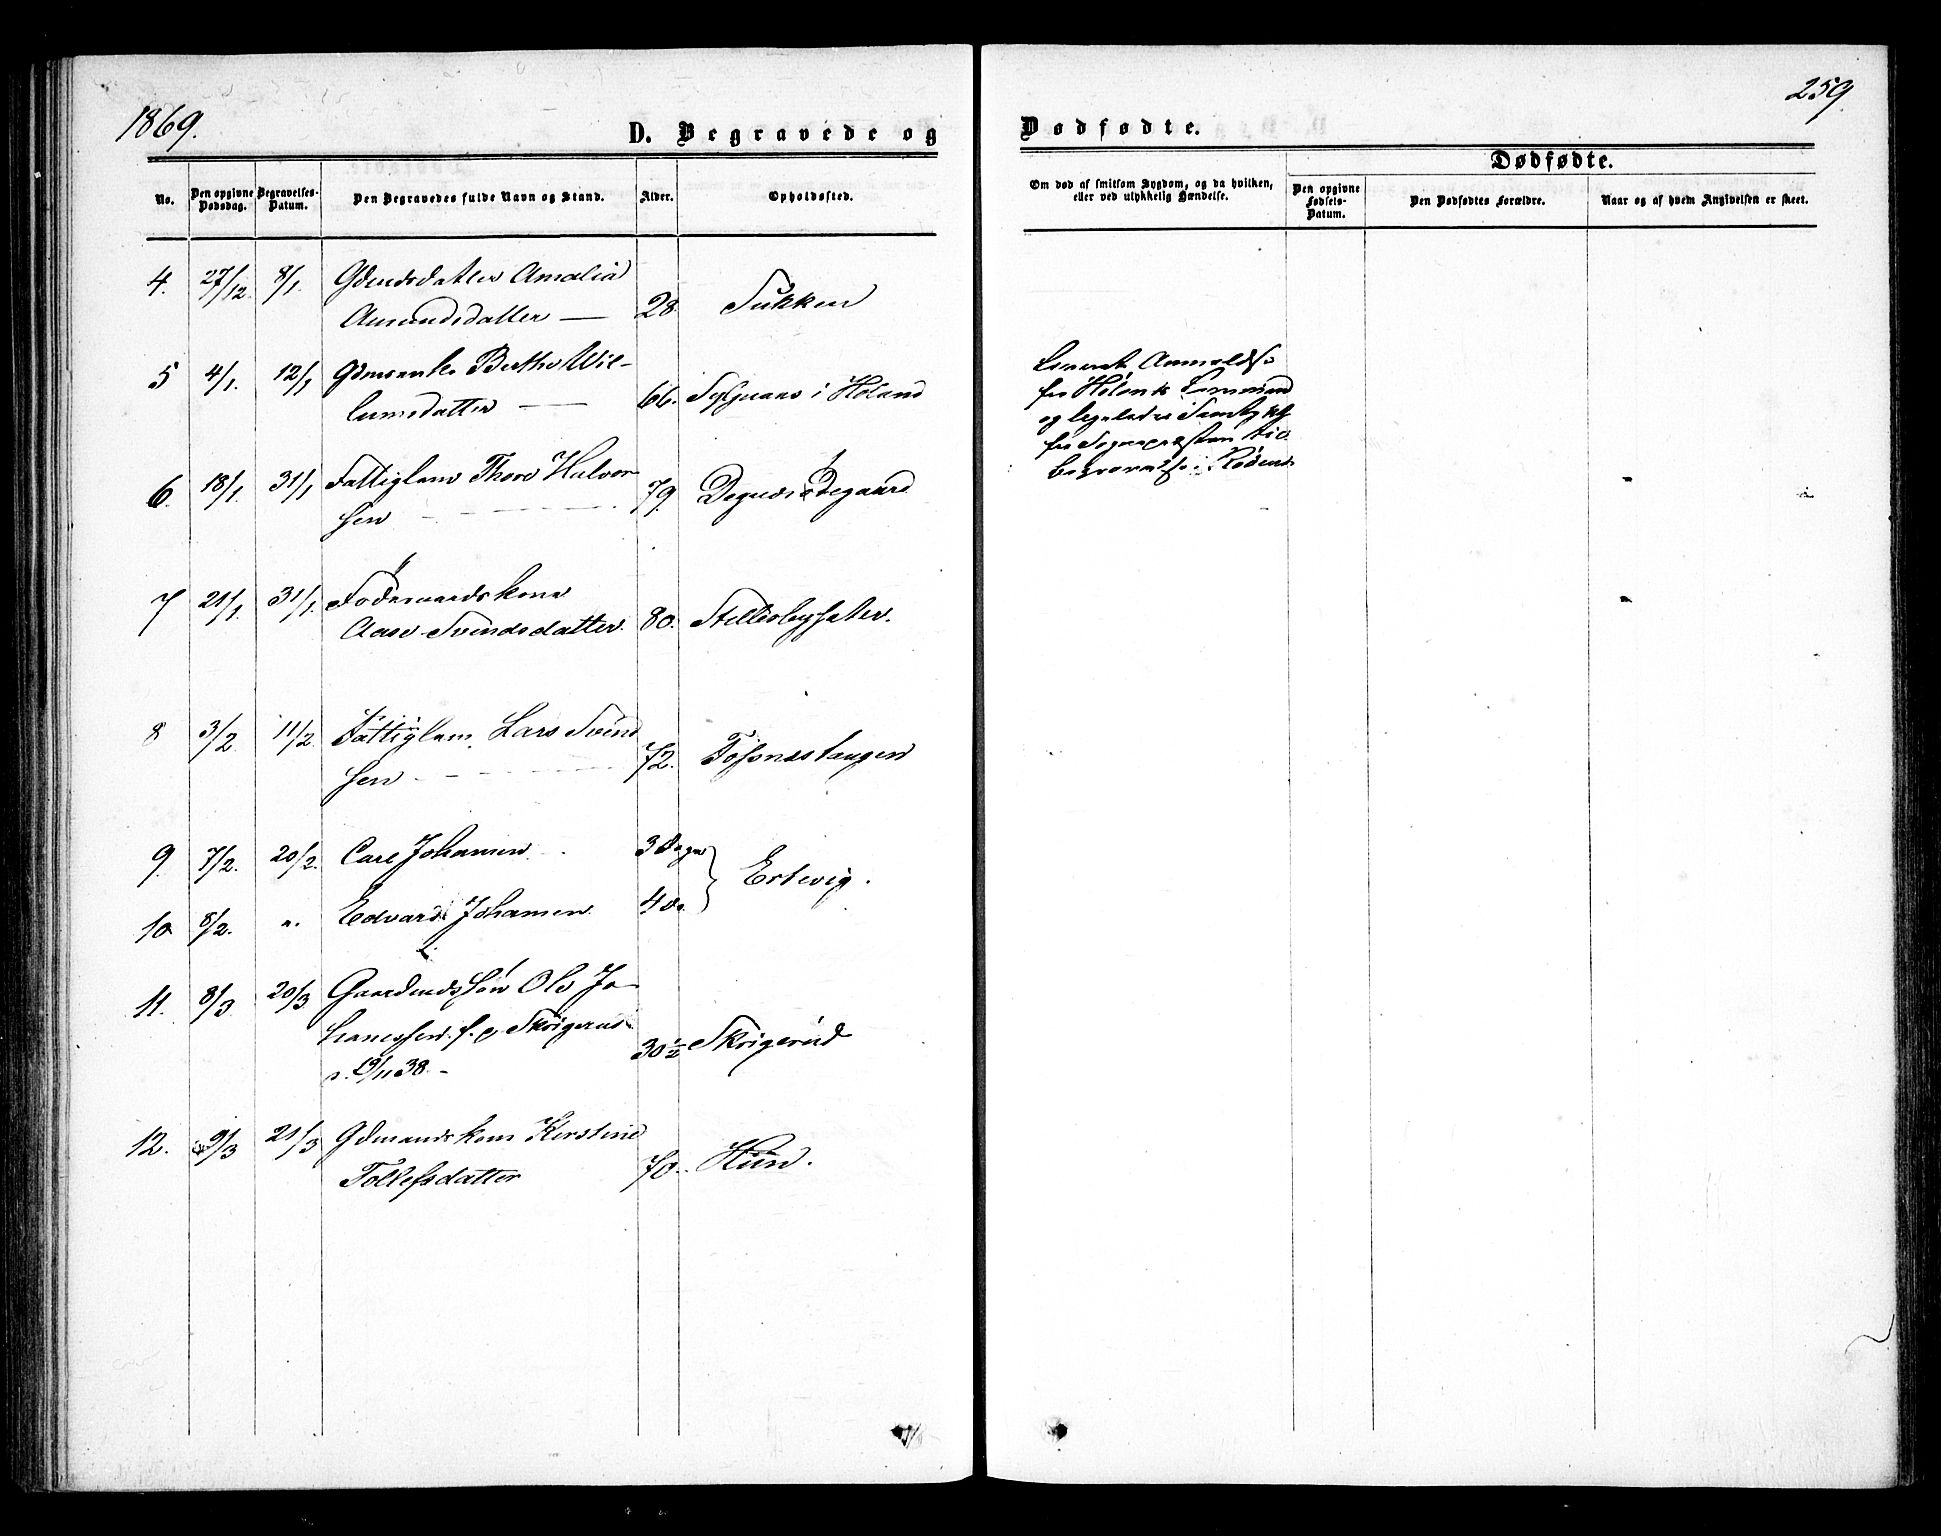 1869.
259
D. Begravede og Dødfødte.
Dødfødte.
No.
Den opgivne Dødsdag.
Begravelses-Datum.
Den Begravedes fulde Navn og Stand.
Alder.
Opholdssted.
Om død af smitsom Sygdom, og da hvilken,
eller ved ulykkelig Hændelse.
Den opgivne Fødsels-Datum.
Den Dødfødtes Forældre.
Naar og af hvem Angivelsen er skeet.
4. 27/12. 8/1. Gdmdsdatter Amalia
Amundsdatter — 28. Sukken
5 4/1. 12/1 Gdmsenke Berthe Wil-
lumsdatter — 66. i Høland
fra Hølands
og
fra Sognepræsten
Begravelse i Rødenes
6. 18/1. 31/1 Fattiglem Thore Halvor
sen 79. Degnesødegaard
7 21/1. 31/1. Föderaadskone
Aase Svendsdatter. 80. Stillesbysæter.
8 3/2 11/2. Fattiglem Lars Svend
sen 72. Fosnæstangen
9. 7/2. 20/2. Carl Johansen 3 Dage
Ertevig.
10 8/2. ". Edvard Johansen 4 Do.
11. 8/3 20/3 Gaardmdssøn Ole Jo-
hanessen f. p. Skrigerud
d. 19/11 38. – 30½ Skrigerud
12. 9/3 21/3 Gdmandskone Kirstine
Tollefsdatter 70. Huun.